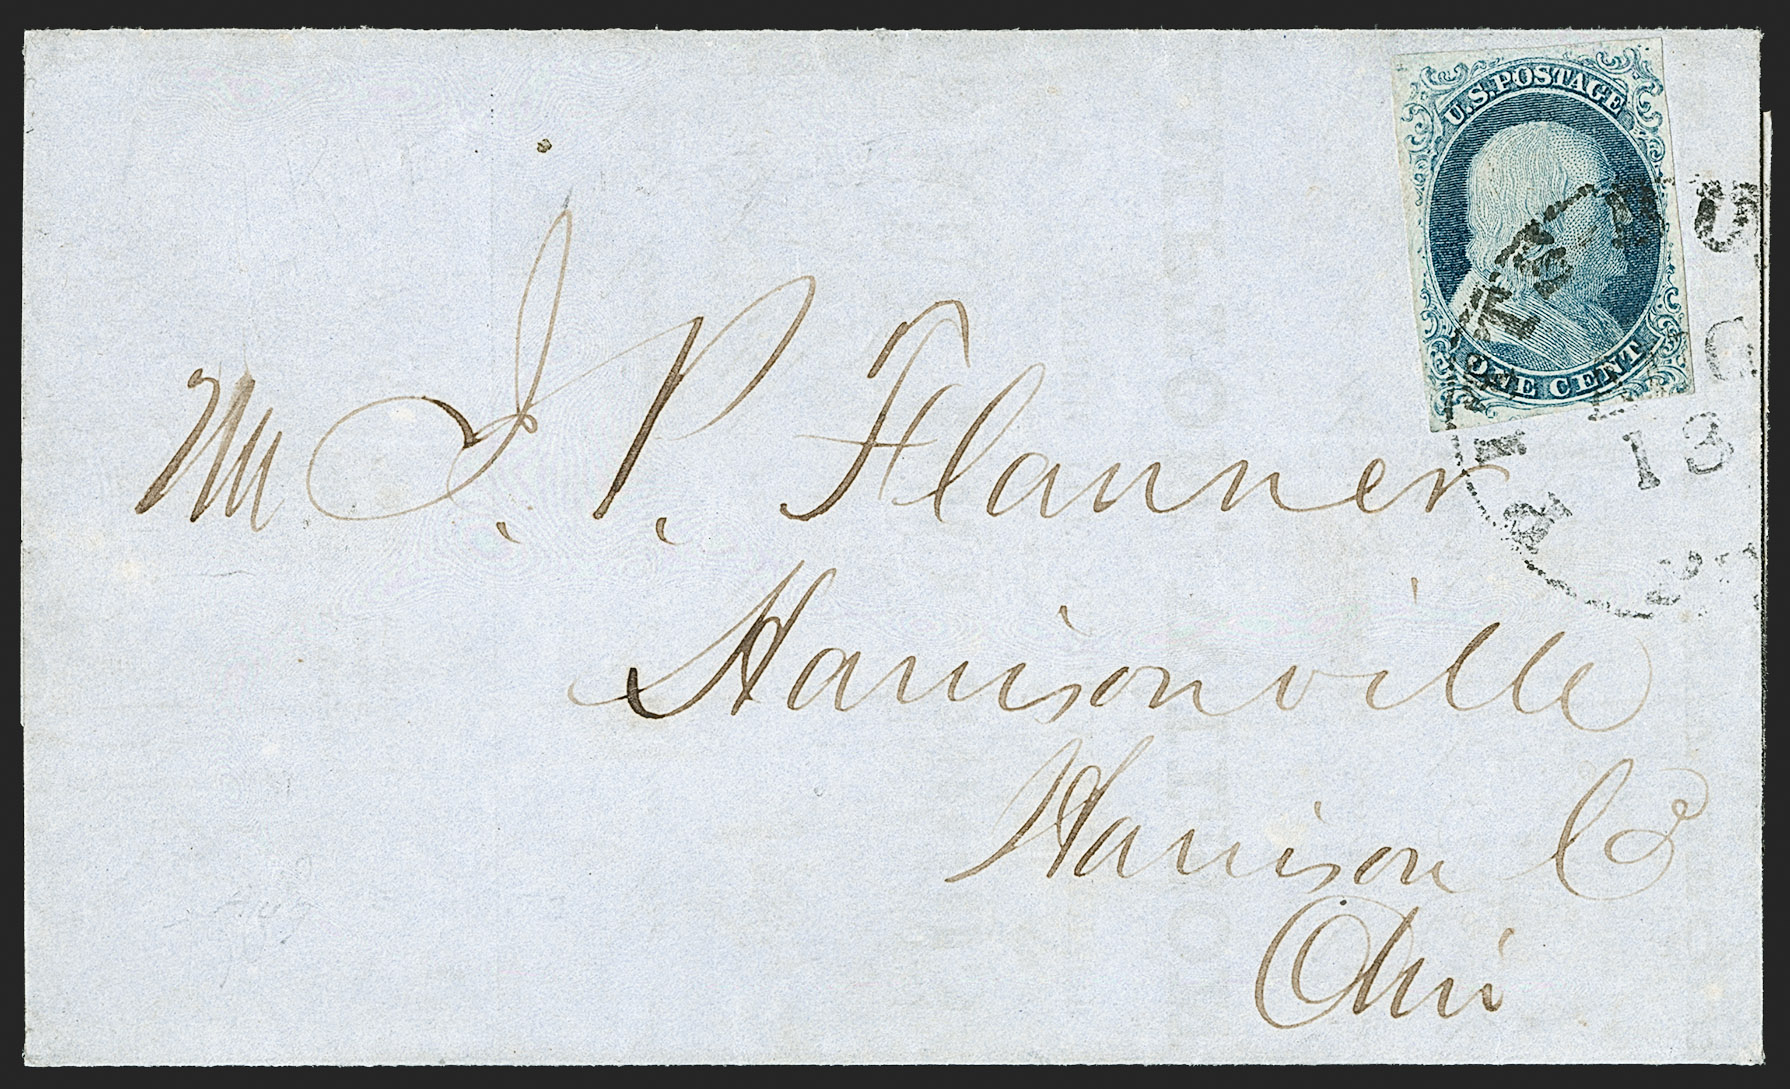 U.S. POSTAGE
ONE CENT
13
Mr J. P. Flanner
Harrisonville
Harrison Co
Ohio